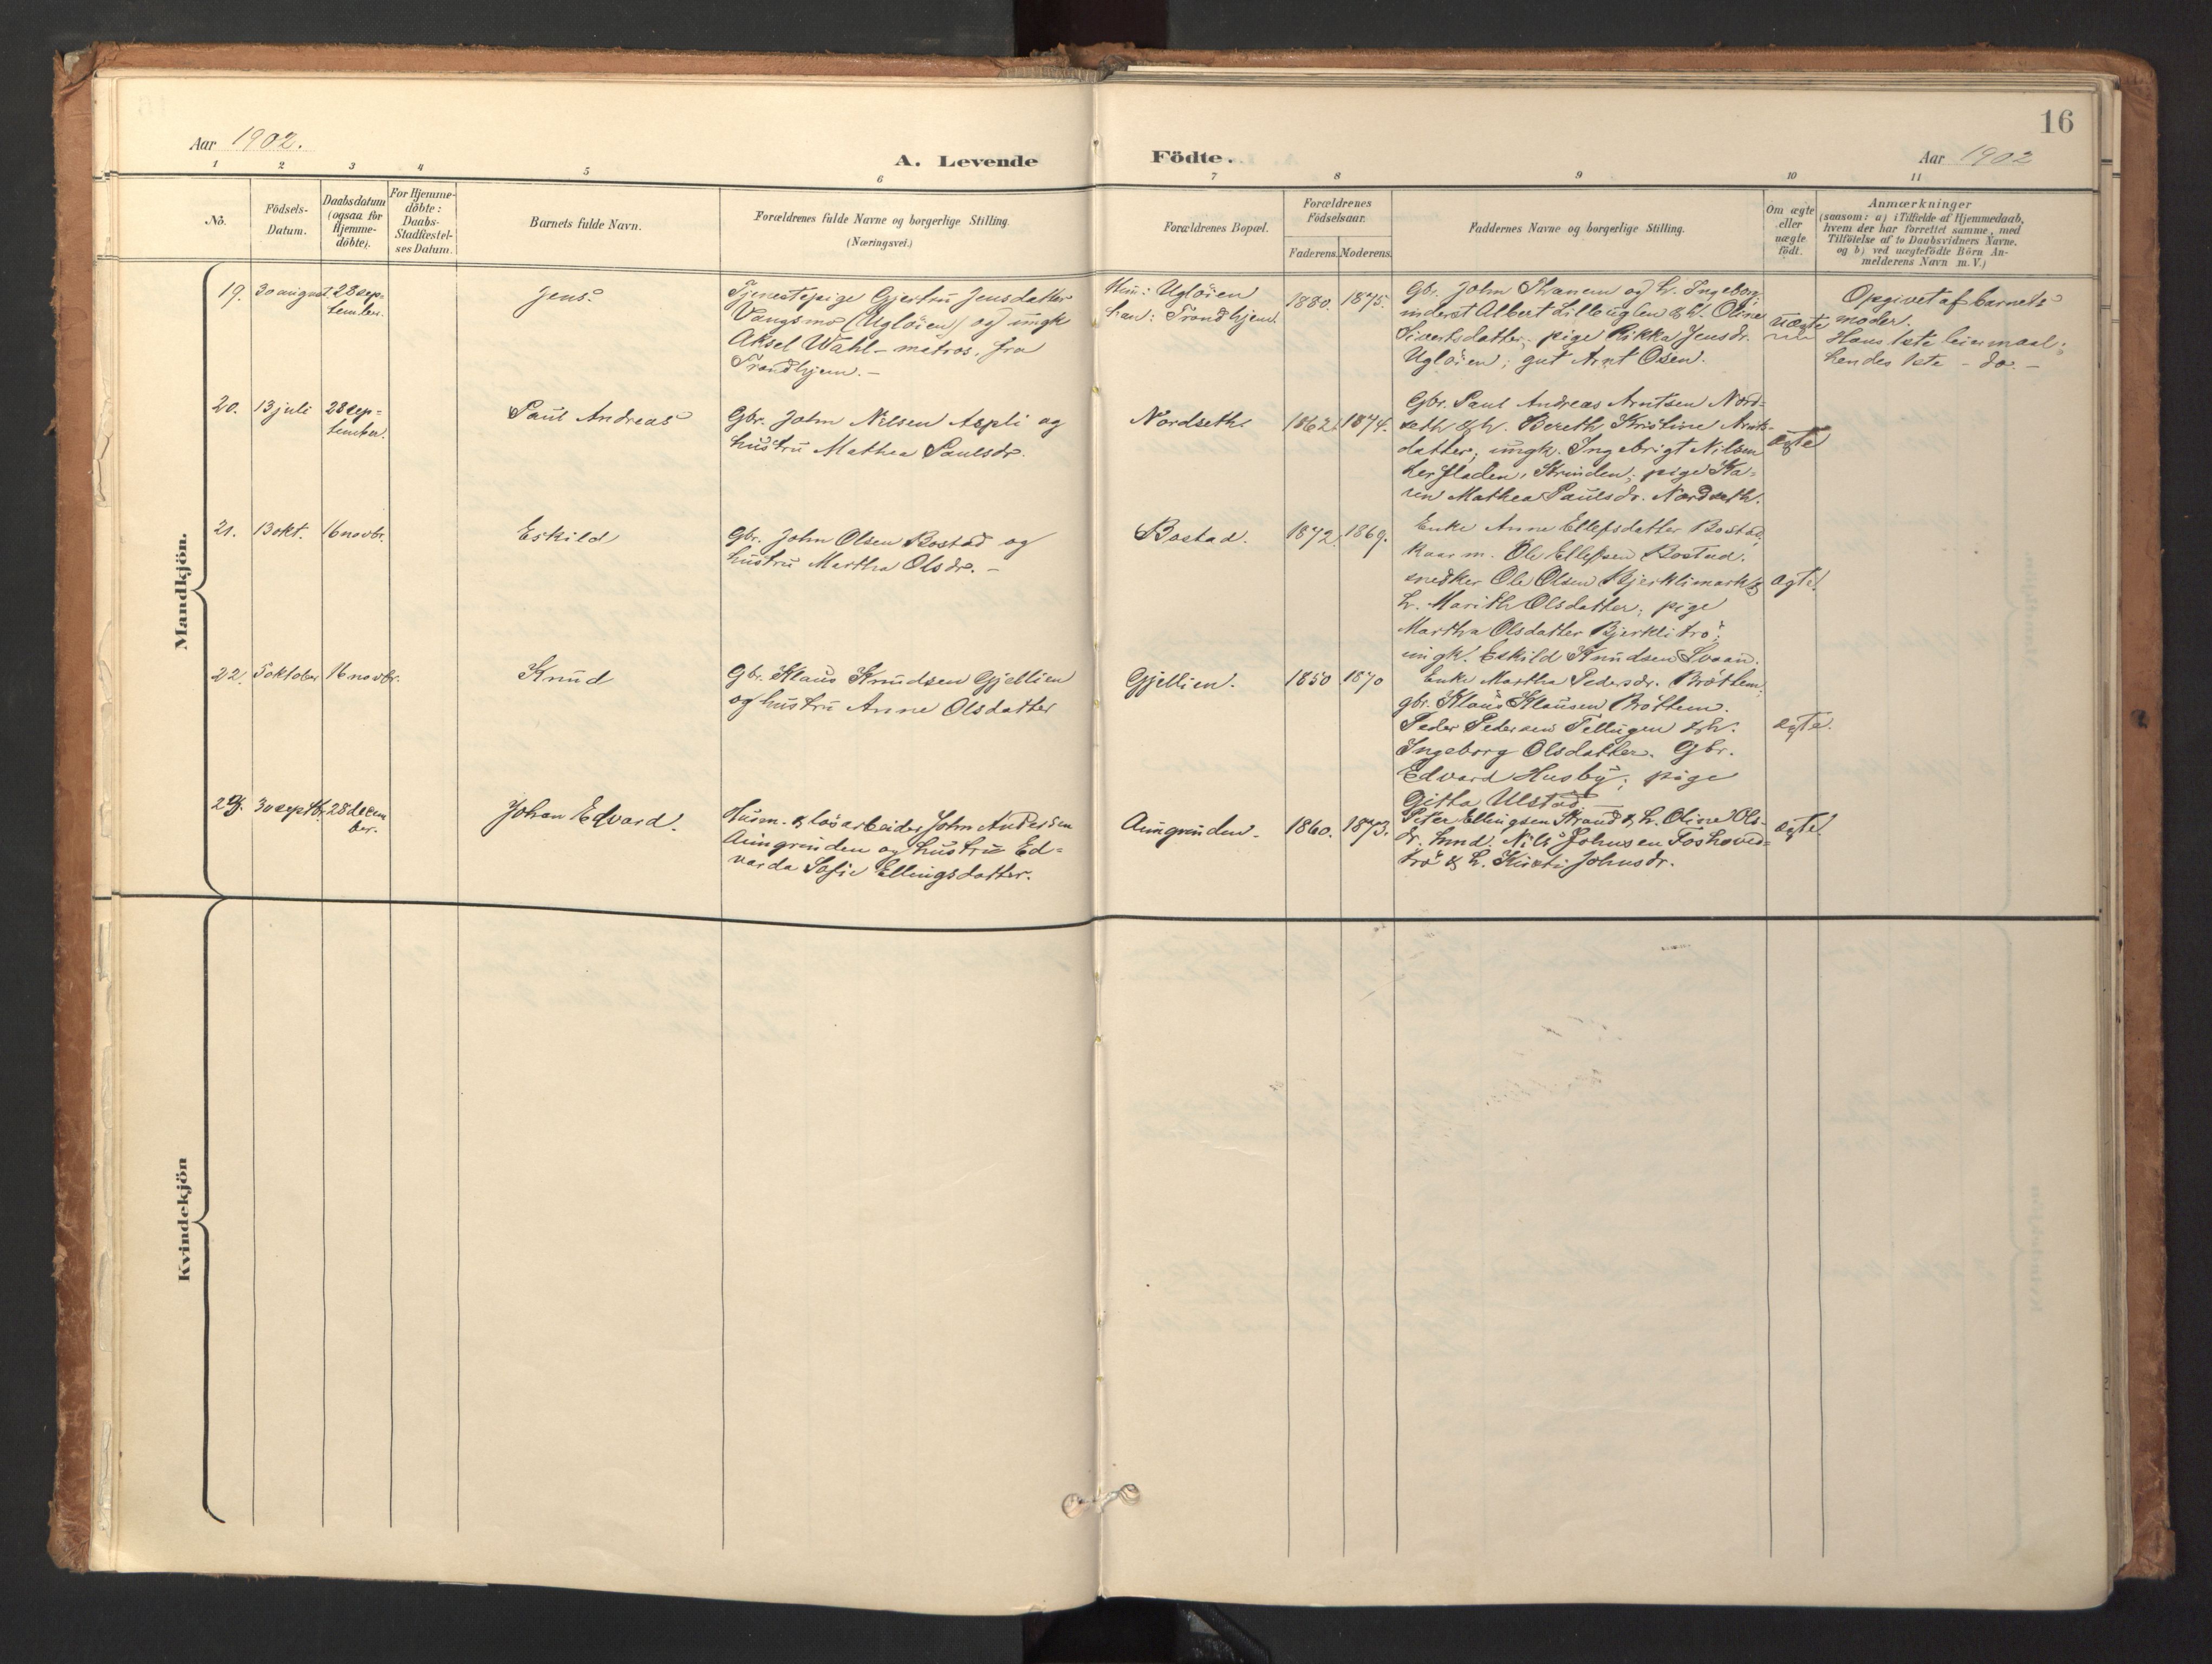 16
Aar 1902.
A. Levende
Födte.
Aar 1902
1
2
3
4
5
6
7
8
9
10
11
No.
Födsels-
Datum.
Daabsdatum
(ogsaa for
Hjemme-
döbte).
For Hjemme-
döbte:
Daabs-
Stadfæstel-
ses Datum.
Barnets fulde Navn.
Forældrenes fulde Navne og borgerlige Stilling.
(Næringsvei.)
Forældrenes Bopæl.
Forældrenes
Födselsaar.
Faderens.
Moderens.
Faddernes Navne og borgerlige Stilling.
Om ægte
eller
uægte
födt.
Anmærkninger
(saasom: a) i Tilfælde af Hjemmedaab,
hvem der har forrettet samme, med
Tilföielse af to Daabsvidners Navne.
og b) ved uægtefödte Börn An-
melderens Navn m. V.)
Mandkjön.
19.
30 august
28 sep-
tember.
Jens.
Tjenestepige Gjertru Jensdatter
Vangsmo (Ugloien) og ungk
Aksel Wahl - matros, fra
Trondhjem. -
Hun: Ugloien
han: Trondhjem.
1880.
1875.
Gbr. John Thanem og h. Ingeborg;
inderst Albert Lilleuglen & h. Oline
Sivertsdatter; pige Rikka Jensdr.
Ugloien; gut Arnt Osen.
uægte
Opgivet af barnets
moder.
Hans 1ste leiermaal;
hendes 1ste - do -
20.
13 juli
28 sep-
tember.
Paul Andreas
Gbr. John Nilsen Aspli og
hustru Mathea Paulsdr.
Nordseth.
1862.
1874.
Gbr. Paul Andreas Arntsen Nord-
seth & h. Bereth Kristine Arnts-
datter; ungk. Ingebrigt Nilsen
Lersladen, Strinden; pige Ka-
ren Mathea Paulsdr. Nordseth.
ægte
21.
13 okt.
16 novbr.
Eskild
Gbr. John Olsen Bostad og
hustru Martha Olsdr. -
Bostad.
1872.
1869.
Enke Anne Ellefsdatter Bostad,
kaarm. Ole Ellefsen Bostad.
snedker Ole Olsen Bjerklimark &
h. Marith Olsdatter; pige
Martha Olsdatter Bjerklitrø;
ungk. Eskild Knudsen Svaan.
ægte.
22.
5 oktober
16 novbr.
Knud
Gbr. Klaus Knudsen Gjellien
og hustru Anne Olsdatter
Gjellien.
1850
1870
Enke Martha Pedersdr. Brøttem;
gbr. Klaus Klausen Brøttem.
Peder Pedersen Tellugen & h.
Ingeborg Olsdatter. Gbr.
Edvard Husby; pige
Gitta Ulstad. -
ægte.
23.
30 septbr.
28 decem
ber.
Johan Edvard.
Husm. & løsarbeider John Andersen
Aungrinden og hustru Ed-
varda Sofie Ellingsdatter.
Aungrinden -
1860.
1873.
Peter Ellingsen Strand & h. Oline Ols-
dr. hmd. Nils Johnsen Foshoved-
trø & h. Kirsti Johnsdr.
ægte.
Kvindekjön